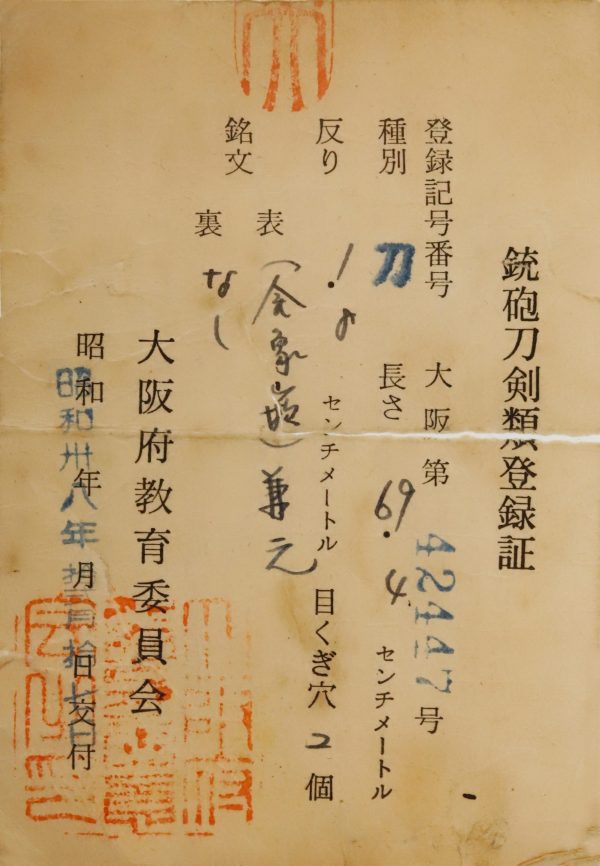 銃砲刀剣類登録証
登録記号番号 大阪第 42447 号
種別 刀 長さ 69.4 センチメートル
反り 1.8 センチメートル 目くぎ穴 2 個
銘文 表 (金象嵌)兼元
裏 なし
大阪府教育委員会
昭和 年 月 日交付
昭和卅八年